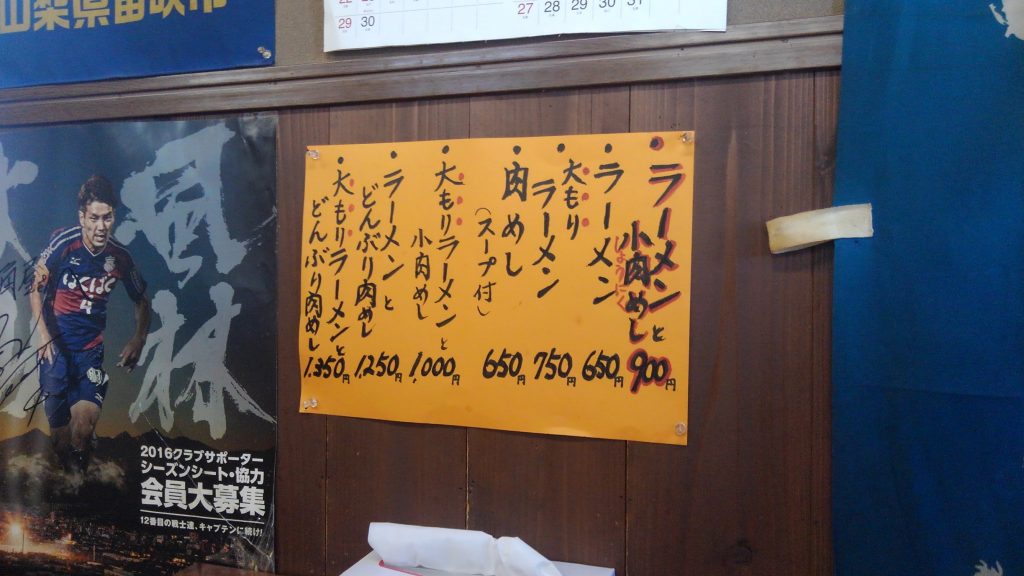 22
29 30
27 28 29 30 31
・ラーメンと
小肉めし 900円
しょうにく
・ラーメン 650円
・大もり
ラーメン 750円
・肉めし
(スープ付) 650円
・大もりラーメンと
小肉めし 1,000円
・ラーメンと
どんぶり肉めし 1,250円
・大もりラーメンと
どんぶり肉めし 1,350円
風林
はくばく
4
2016クラブサポーター
シーズンシート・協力
会員大募集
12番目の戦士達、キャプテンに続け!